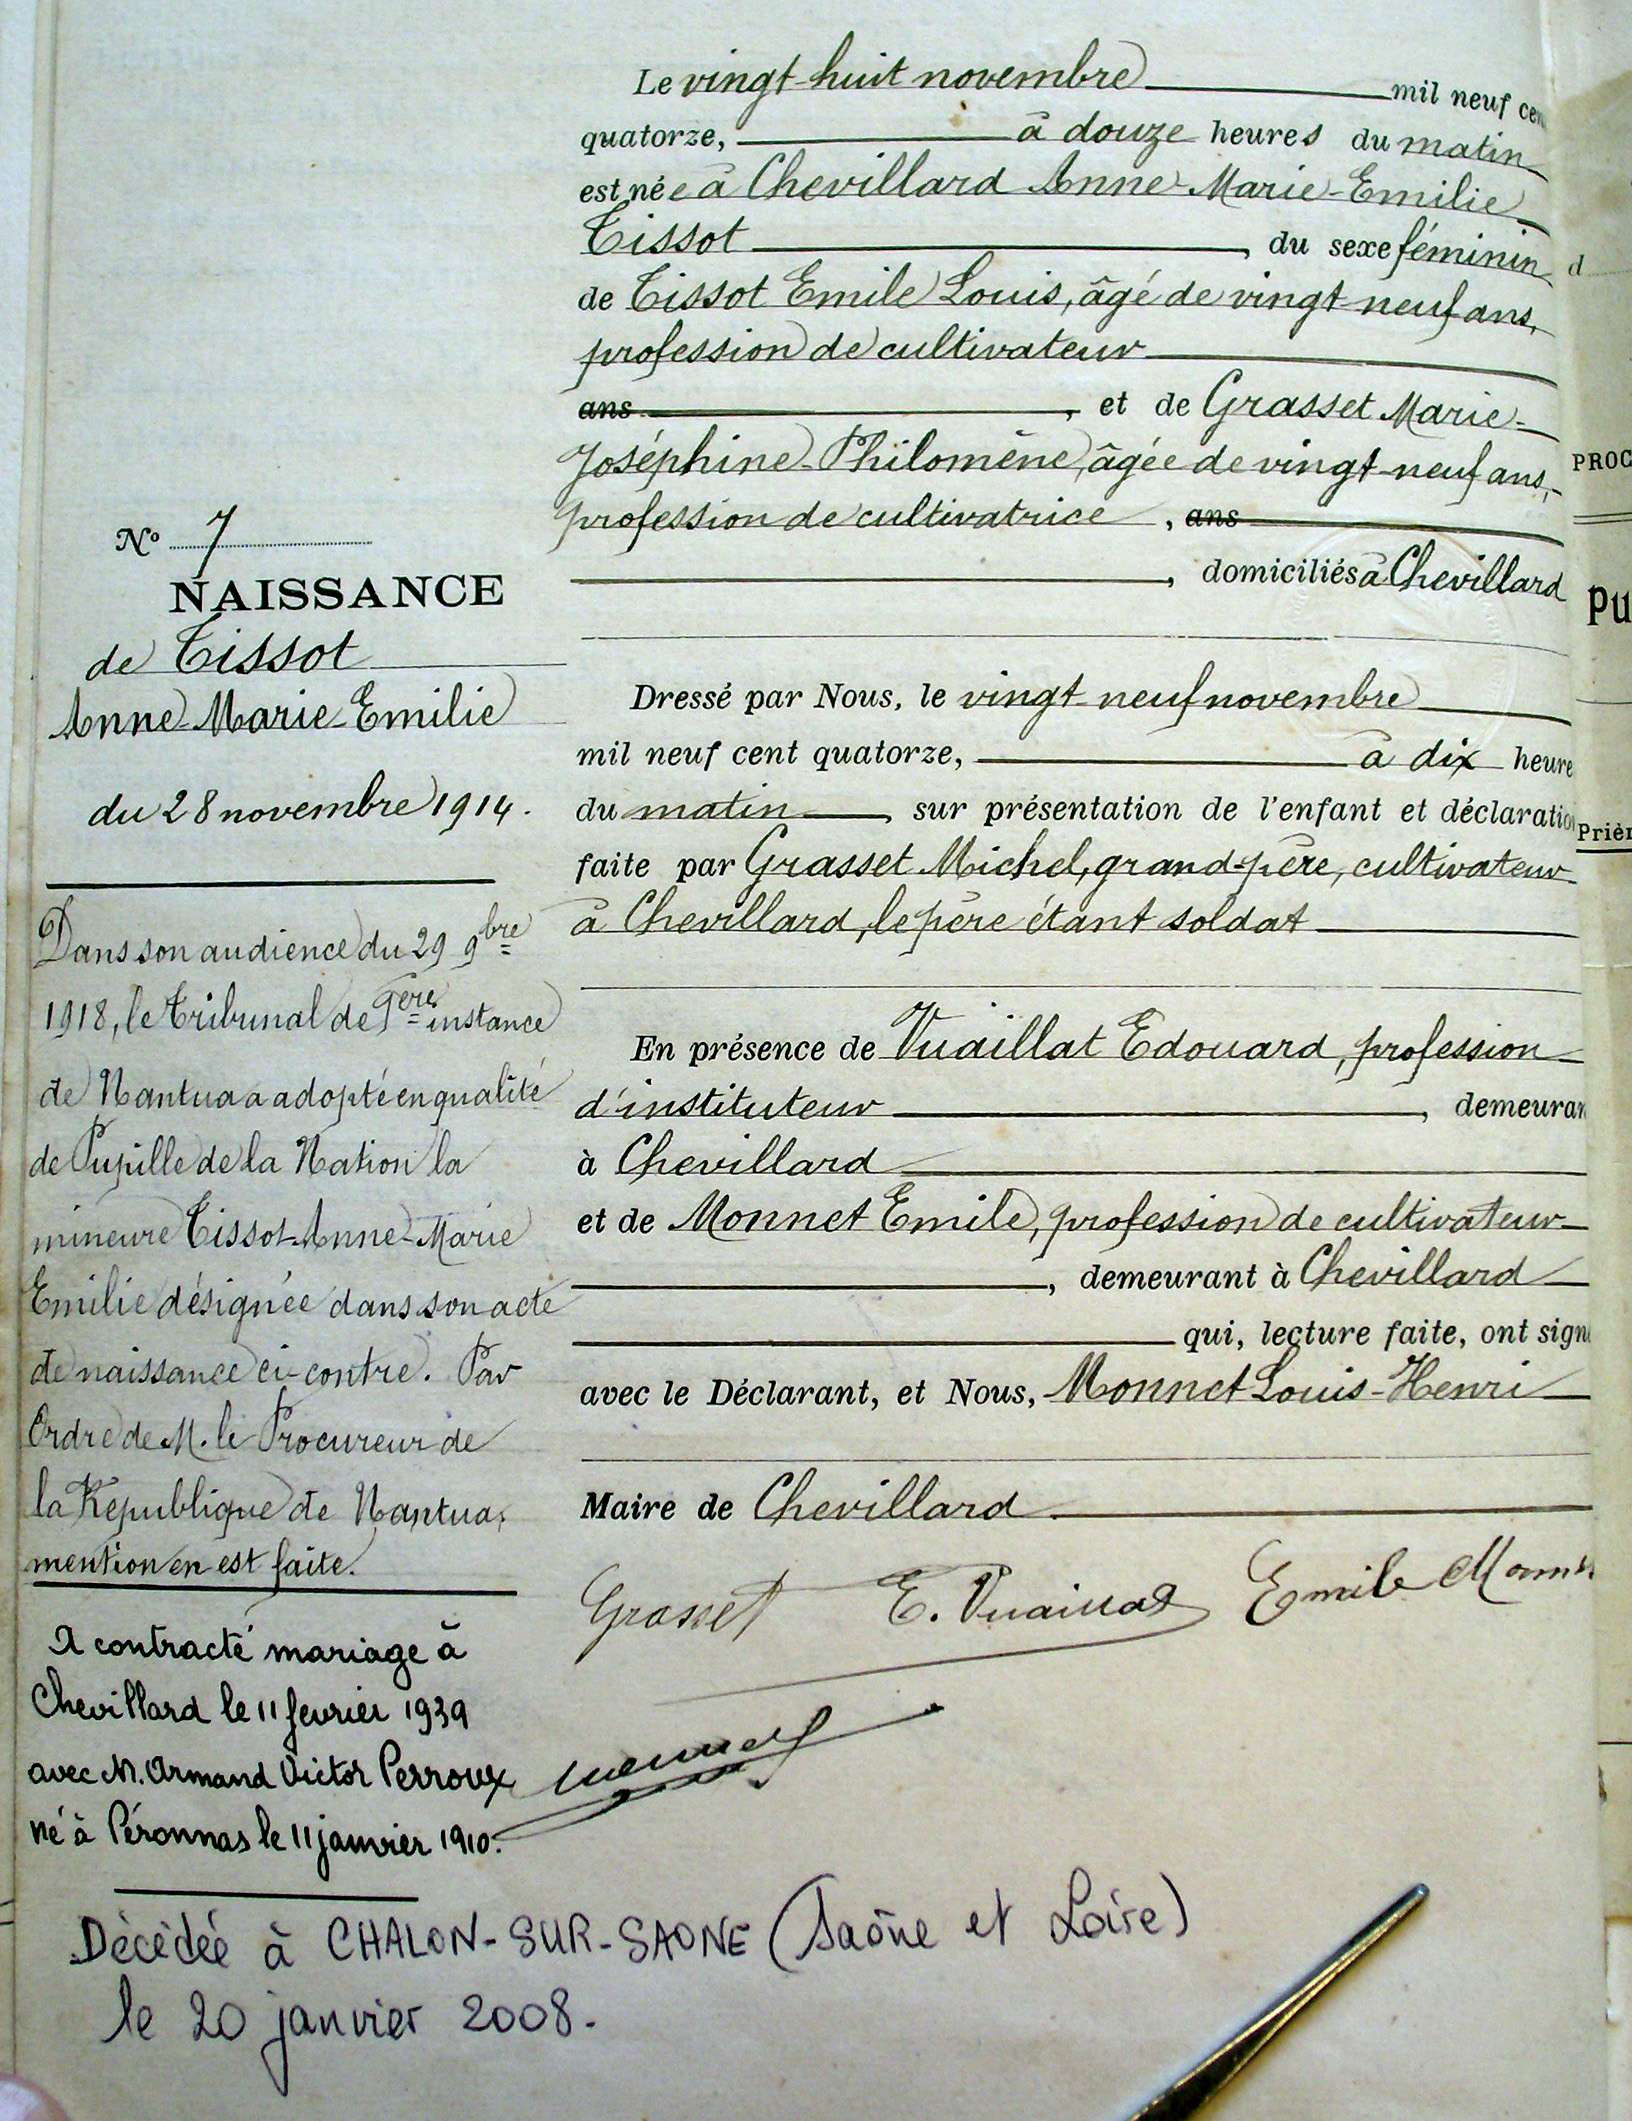 N° 7
NAISSANCE
de Tissot
Anne-Marie-Emilie
du 28 novembre 1914.
Dans son audience du 29 9bre
1918, le Tribunal de 1ère instance
de Nantua a adopté en qualité
de Pupille de la Nation la
mineure Tissot Anne-Marie
Emilie désignée dans son acte
de naissance ci-contre. Par
Ordre de M. le Procureur de
la République de Nantua,
mention en est faite.
A contracté mariage à
Chevillard le 11 fevrier 1939
avec M. Armand Victor Perroux
né à Péronnas le 11 janvier 1910.
Le vingt-huit novembre mil neuf cen
quatorze, à douze heures du matin
est née à Chevillard Anne-Marie-Emilie
Tissot, du sexe féminin
de Tissot Emile Louis, âgé de vingt-neuf ans,
profession de cultivateur
ans, et de Grasset Marie-
Joséphine-Philomène, âgée de vingt-neuf ans,
profession de cultivatrice, ans
, domiciliés à Chevillard
Dressé par Nous, le vingt-neuf novembre
mil neuf cent quatorze, à dix heure
du matin, sur présentation de l'enfant et déclaratio
faite par Grasset Michel, grand-père, cultivateur
à Chevillard, le père étant soldat
En présence de Vuaillat Edouard, profession
d'instituteur, demeuran
à Chevillard
et de Monnet Emile, profession de cultivateur
, demeurant à Chevillard
qui, lecture faite, ont signé
avec le Déclarant, et Nous, Monnet Louis-Henri
Maire de Chevillard.
Grasset E. Vuaillat Emile Monn
Monnet
Décédée à CHALON-SUR-SAONE (Saône et Loire)
le 20 janvier 2008.
d
PROC
PU
Prièr